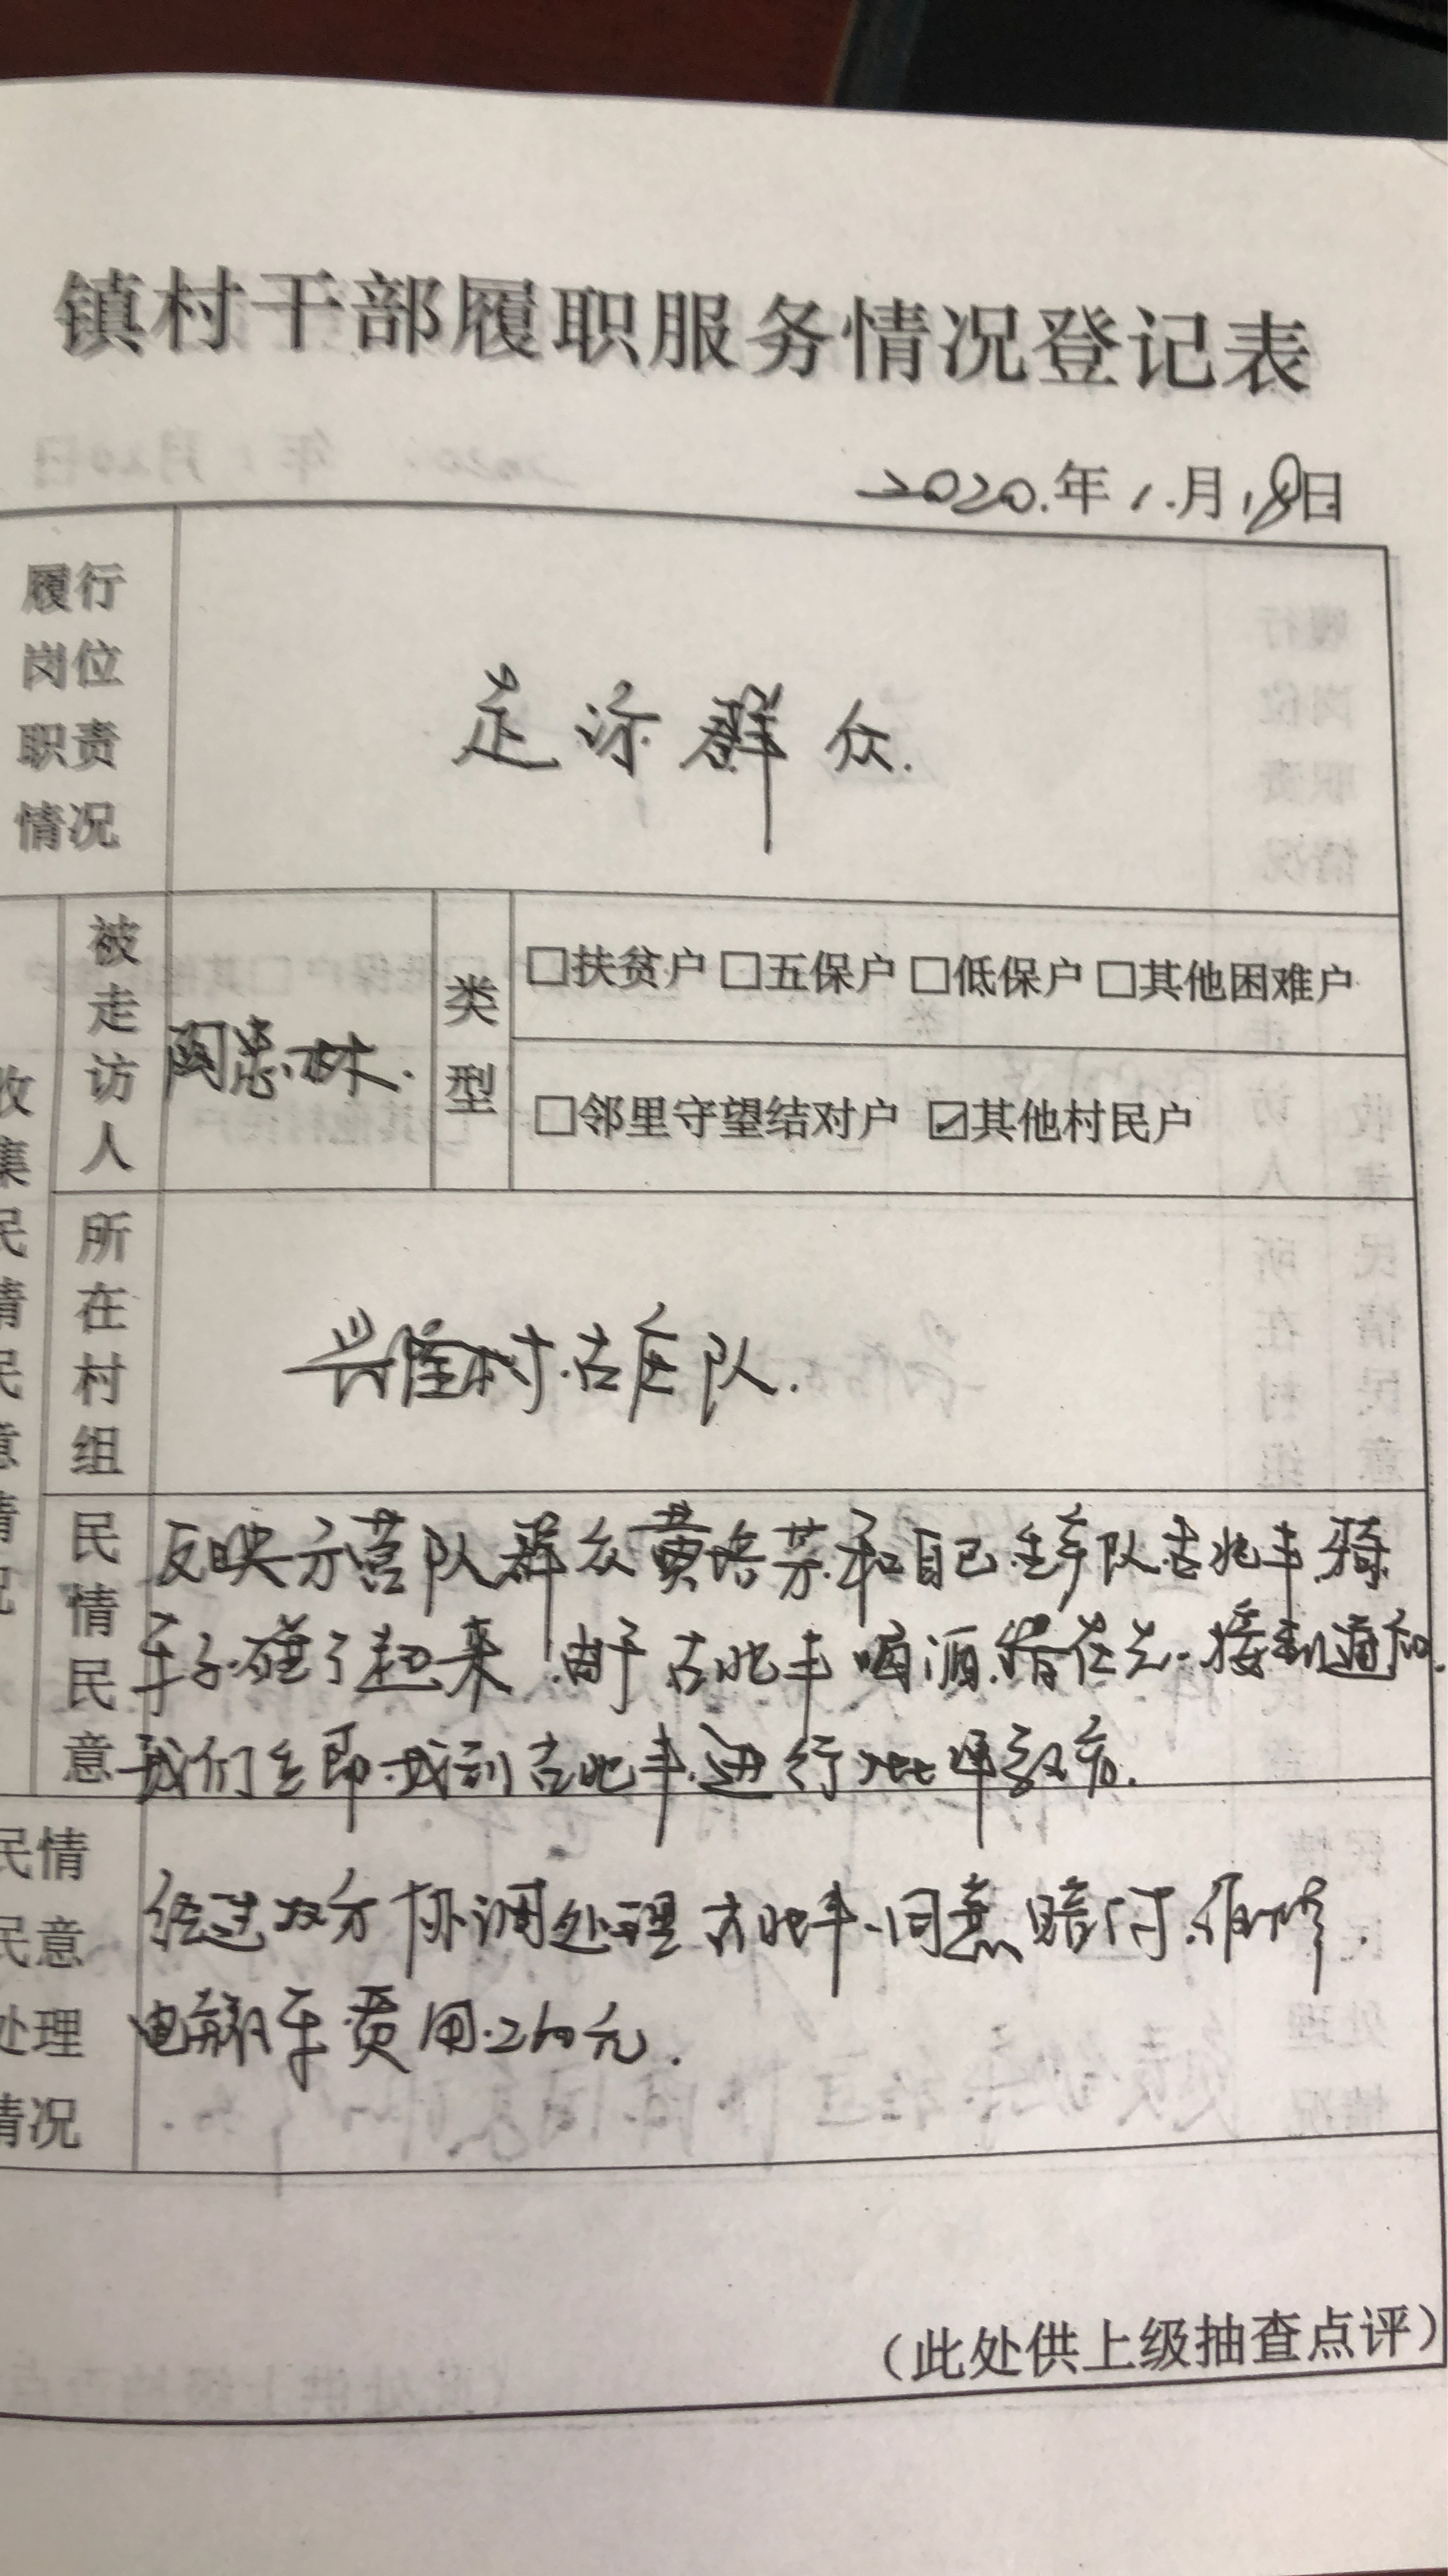 镇村干部履职服务情况登记表
2020.年1.月18日
履行
岗位
职责
情况
走访群众.
被走访人
类型
□扶贫户 □五保户 □低保户 □其他困难户
□邻里守望结对户 ☑其他村民户
收集民情民意情况
所在村组
兴隆村.古庄队.
民情民意
反映方营队群众黄培芳和自己 队古兆丰骑
车子碰了起来.由于古兆丰喝酒.错在先.接到通知.
我们立即找到古兆丰.进行批评教育.
民情
民意
处理
情况
经过双方协调处理古兆丰.同意赔付.维修.
电瓶车费用.260元.
（此处供上级抽查点评）